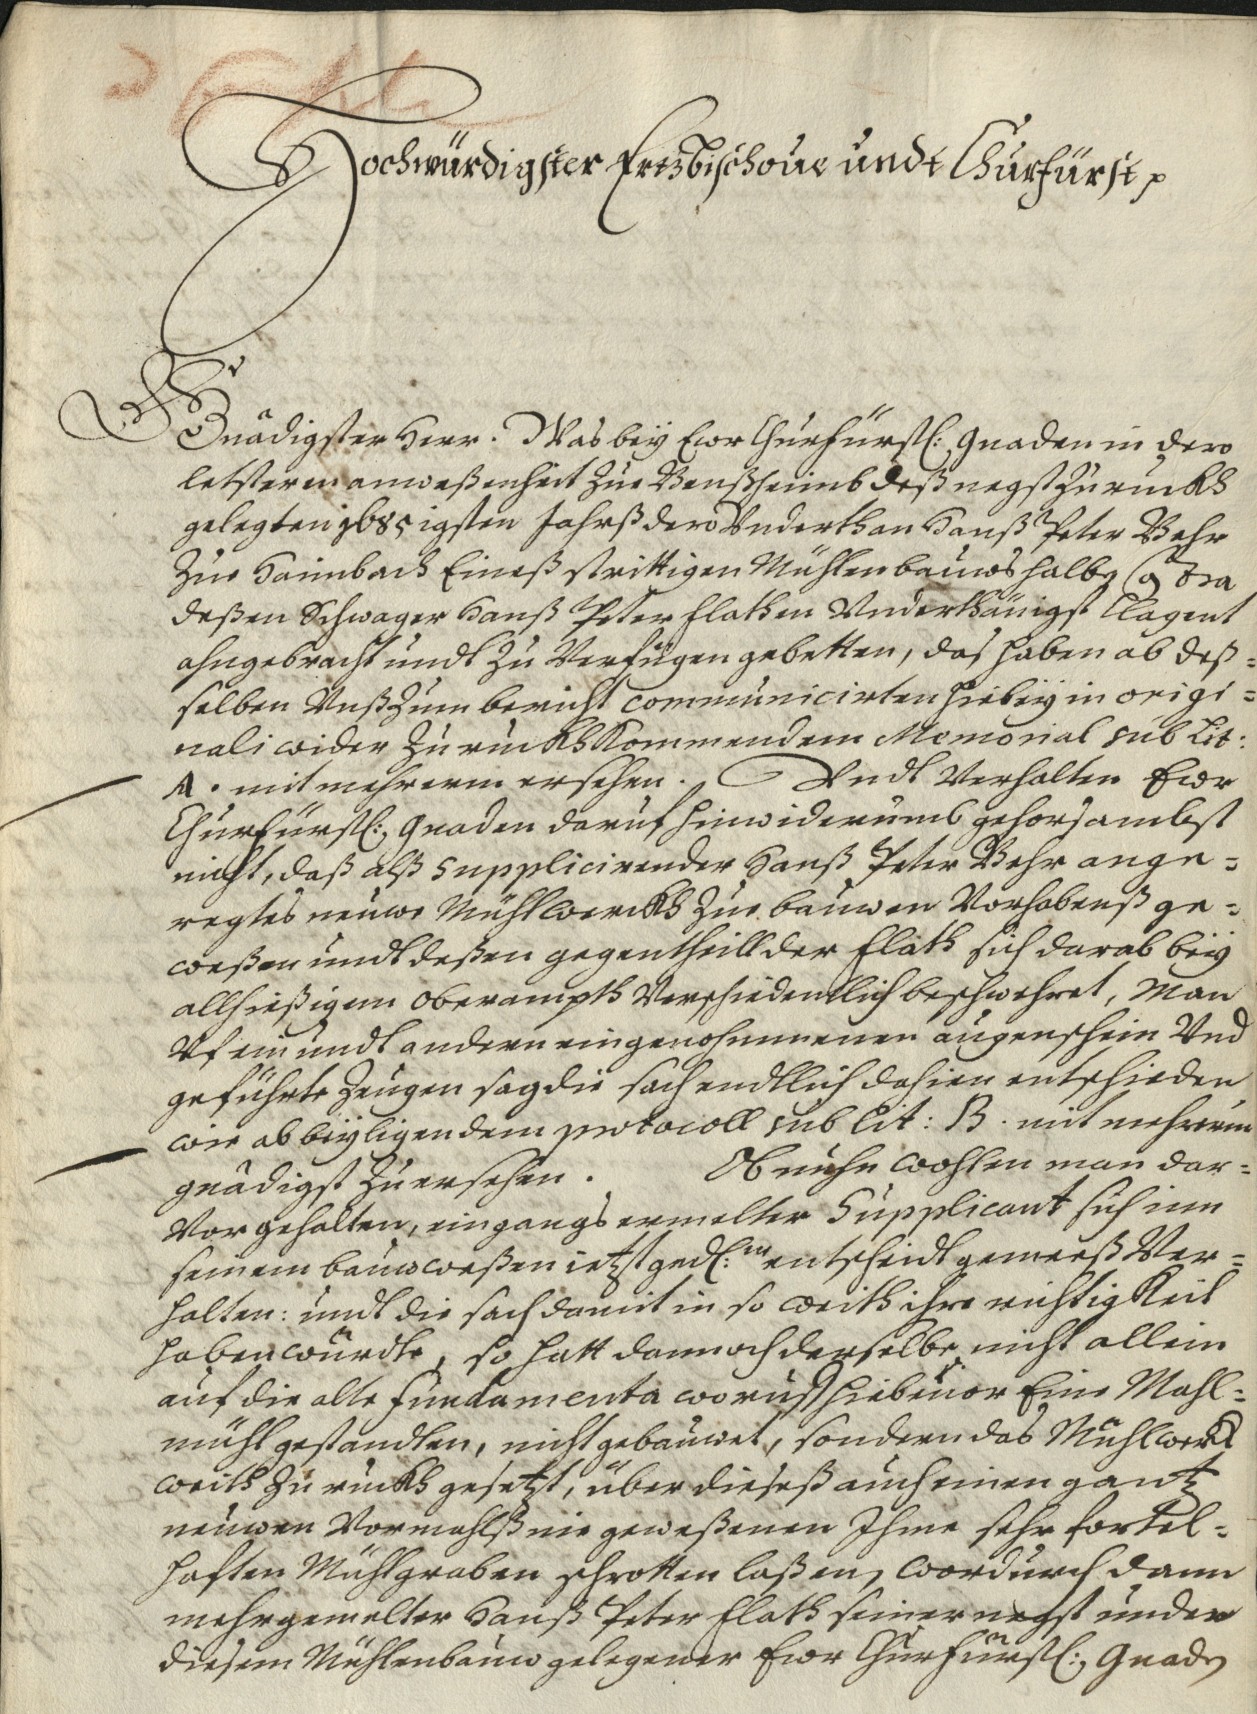 Hochwürdigster Ertzbischoue undt Churfürst p
Gnädigster Herr. Was bey Ewr Churfürstl: Gnaden in dero
letsteren anweßenheit zue Benßheimb deß negst zuruckh
gelegten 1685igsten Jahrß dero Vnderthan Hanß Peter Behr
zue Haimbach Eineß strittigen Mühlenbauws halber contra
deßen Schwager Hanß Peter Flathen Vnderthänigst Clagent
ahngebracht undt zu Verfügen gebetten, das haben ab deß=
selben Vnß zum bericht communicirten hiebey in origi=
nali wider zuruckh Kommendem Memorial sub Lit:
A. mit mehrerm ersehen. Vndt Verhalten Ewr
Churfürstl: Gnaden daruf hinwiderumb gehorsambst
nicht, daß alß Supplicirender Hanß Peter Behr ange=
regtes neuwe Mühlwerckh zue bauwen Vorhabenß ge=
weßen undt deßen gegentheill der Flath sich darab bey
allhießigem Oberampth Verschiedentlich beschwehret, Man
Vf ein undt andern eingenohmmenen augenschein Vnd
geführte Zeugen sag die sach endtlich dahien entschieden
wie ab beyligendem protocoll sub Lit: B. mit mehrerm
gnädigst zu ersehen. Ob nuhn wohlen man dar=
Vor gehalten, eingangs ermelter Supplicant sich inn
seinem bauwweßen ietzt gedl:m entscheidt gemeeß Ver=
halten: undt die sach damit in so weith ihre richtigkeit
haben würdte, so hatt dannoch derselbe nicht allein
auf die alte fundamenta woruf hiebeuor Eine Mahl=
mühl gestandten, nicht gebauwet, sondern das Mühlwerck
weith zuruckh gesetzt, über dieseß auch einen gantz
neuwen Vormahlß nie geweßenen Ihme sehr fortel=
hafften Mühlgraben schrotten laßen, wordurch dann
mehrgemelter Hanß Peter Flath seiner negst under
diesem Mühlenbauw gelegener Ewr Churfürstl: Gnaden